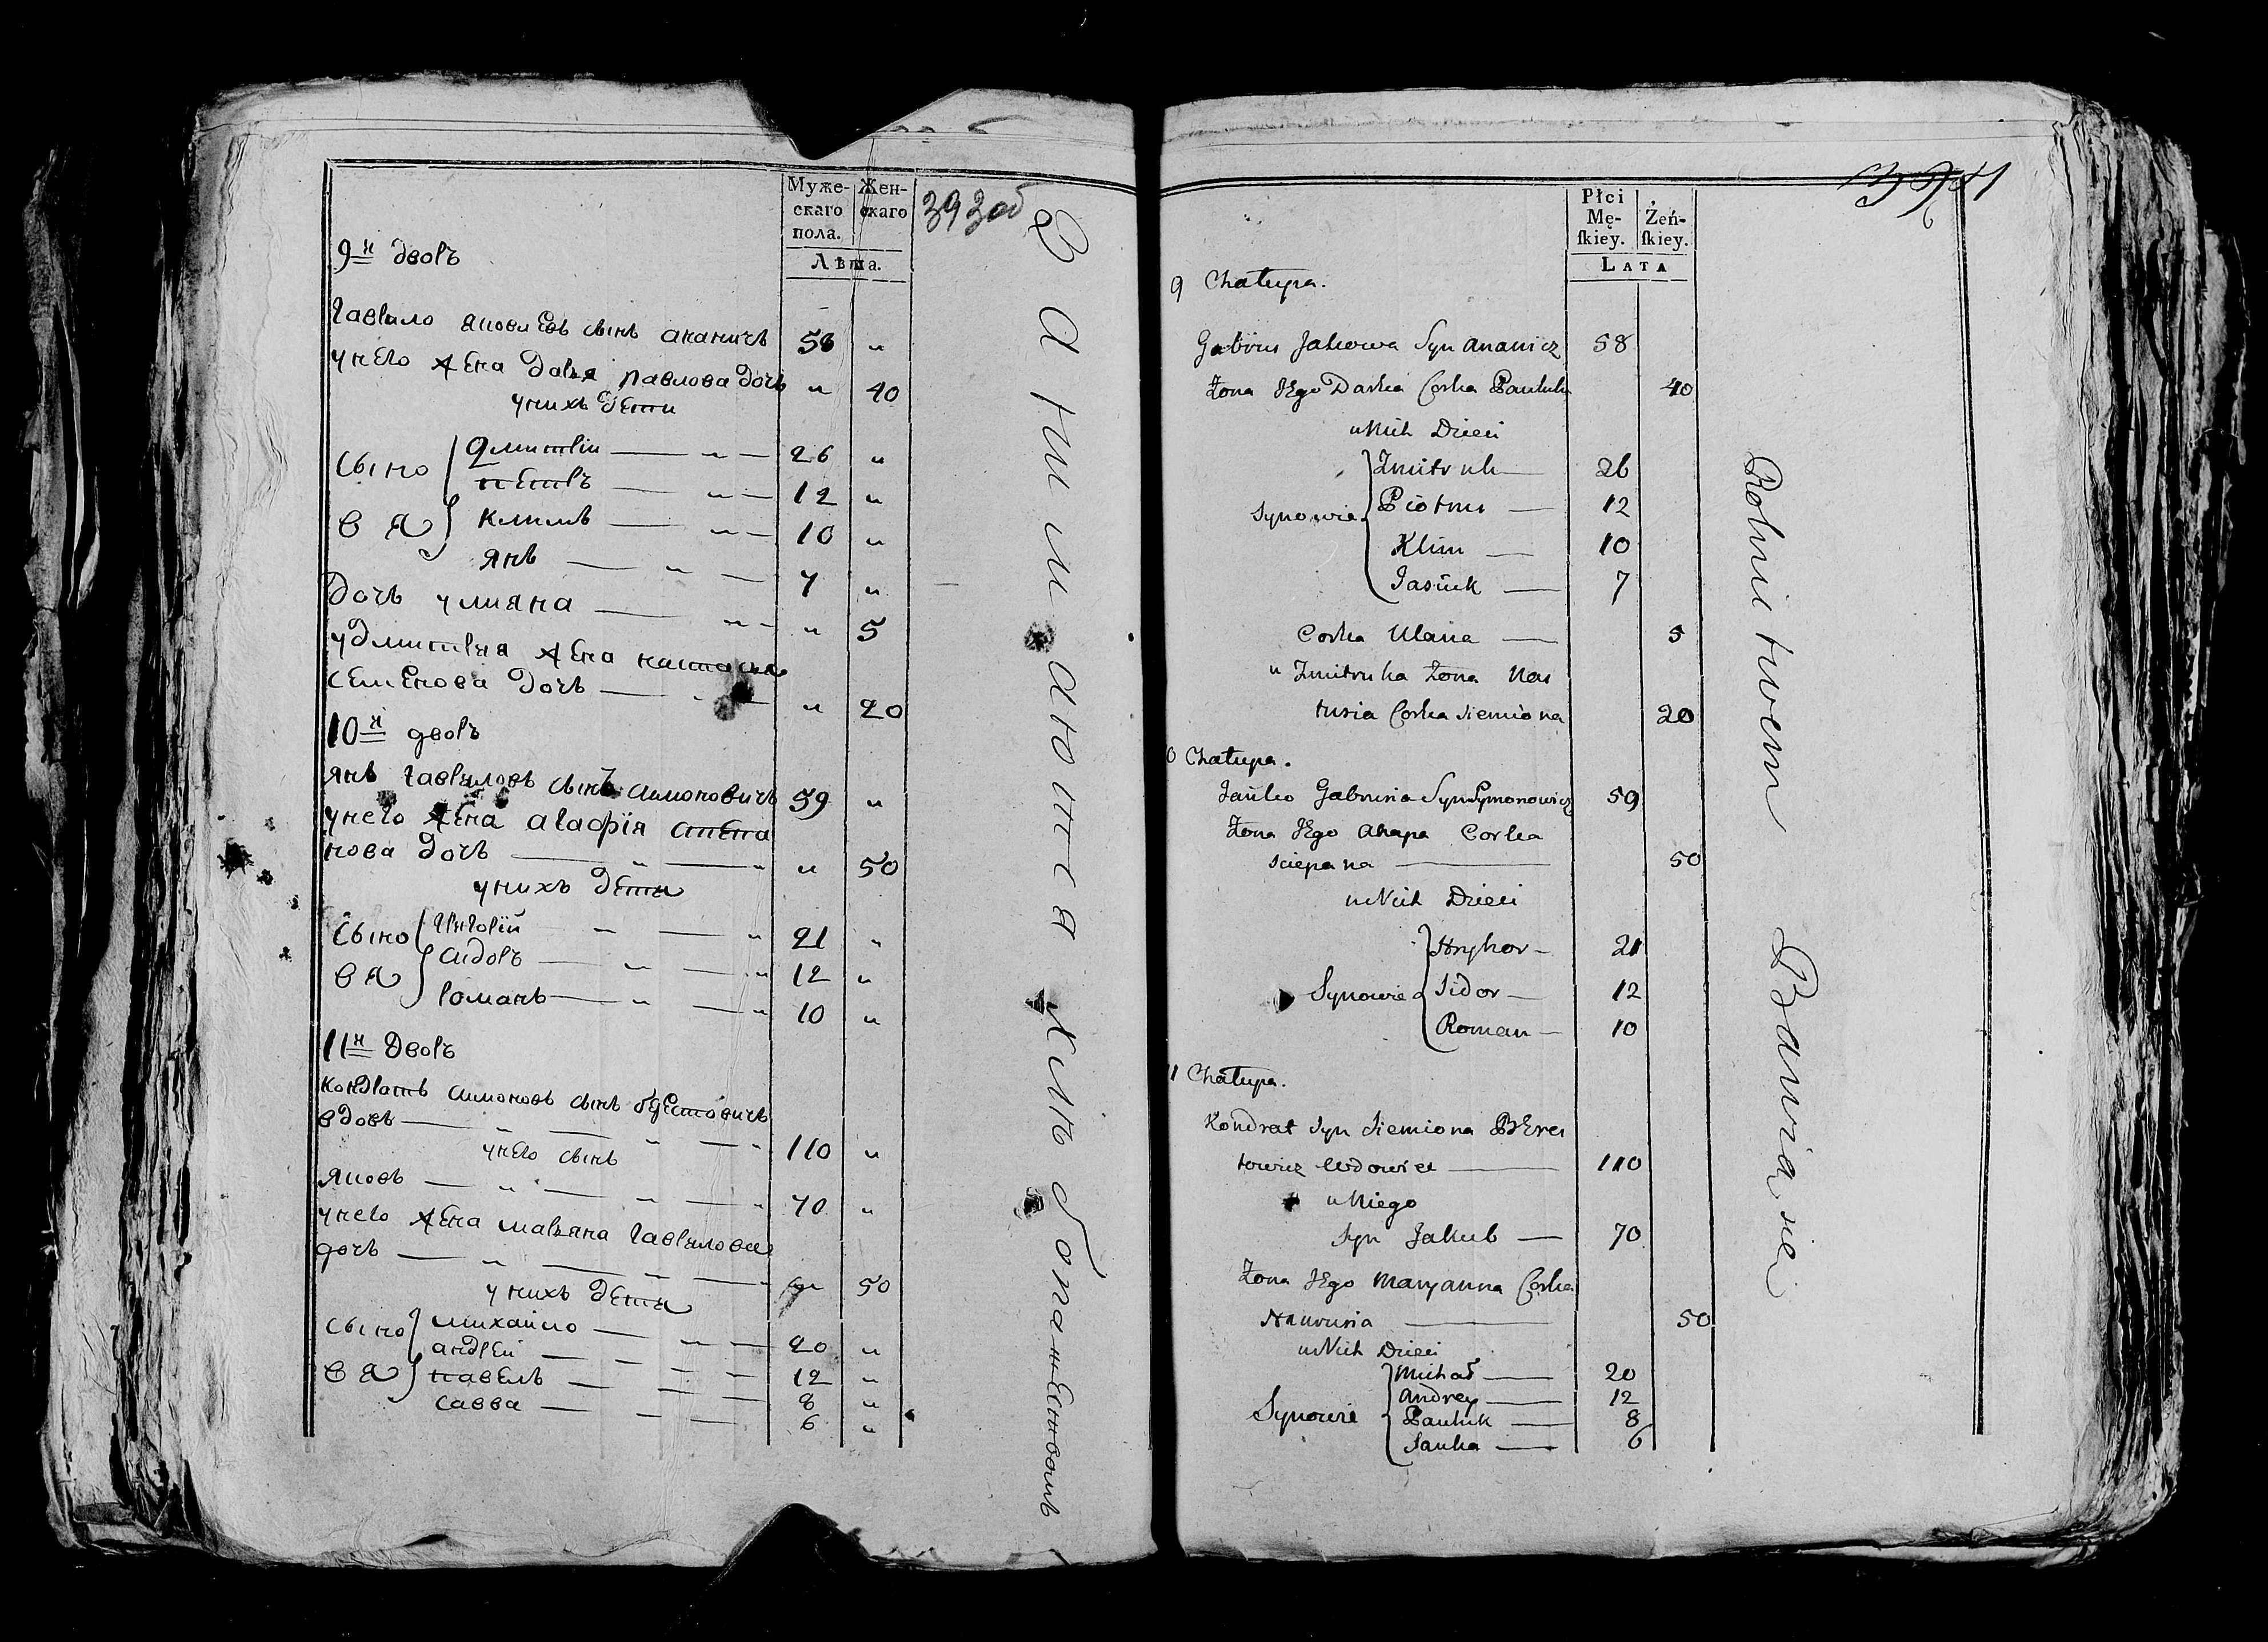 Муже-
скаго
пола.
Жен-
скаго
Лѣта.
393об
9й дворъ
Гаврило яковлевъ сынъ ананичъ 58 "
унего жена дарья павлова дочь " 40
унихъ дети
Сыно
вья
Дмитрiй 26 "
петръ 12 "
климъ 10 "
янъ 7 "
Дочь улияна " 5
удмитрия жена настасия
семенова дочь " 20
10й дворъ
янъ гаврыловъ сынъ симоновичъ 59 "
унего жена агафiя степа
нова дочь " 50
унихъ дети
Сыно
вья
григорiй 21 "
сидоръ 12 "
романъ 10 "
11й дворъ
кондратъ симоновъ сынъ берестовичъ
вдовъ 110 "
унего сынъ
яковъ 70 "
унего жена марьяна гаврылова
дочь " 50
унихъ дети
Сыно
вья
михайло 20 "
андрей 12 "
павелъ 8 "
савва 6 "
Занимаются хлѣбопашенствомъ
Płci
Mę-
ſkiey.
Żeń-
ſkiey.
LATA
9 Chałupa.
Gabrus Jakowa Syn Ananicz 58
Żona JEgo Darka Corka Pauluka 40
u Nich Dzieci
Synowie
Zmitruk 26
Piotrus 12
Klim 10
Jasiuk 7
Corka Ulana 5
u Zmitruka Żona Nas
tusia Corka Siemiona 20
0 Chałupa.
Janko Gabrusia Syn Symonowicz 59
Żona JEgo Ahapa Corka
Sciepana 50
u Nich Dzieci
Synowie
Hryhor 21
Sidor 12
Roman 10
11 Chałupa.
Kondrat Syn Siemiona BEres
towicz Wdowiec 110
u Niego
Syn Jakub 70
Żona JEgo Maryanna Corka
Hawrusia 50
u Nich Dzieci
Synowie
Michał 20
Andrey 12
Pauluk 8
Sauka 6
Rolnictwem Bawią się